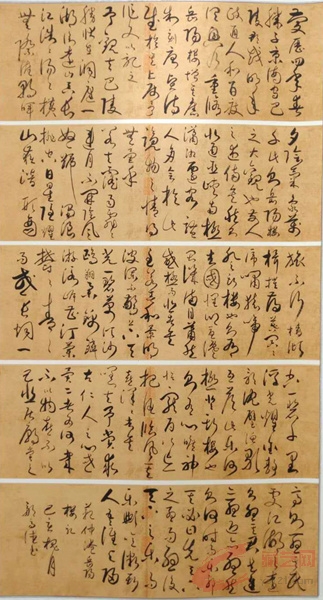 慶曆四年春
滕子京謫守巴
陵郡越明年
政通人和百廢
具興乃重修
岳陽樓增其舊
制刻唐賢今
作文以記之
予觀夫巴陵
勝狀在洞庭一
湖銜遠山吞長
江浩浩湯湯橫
無際涯朝暉
夕陰氣象萬
千此則岳陽樓
之大觀也前人
之述備矣然則
北通巫峽南極
瀟湘遷客騷
人多會於此
覽物之情得
無異乎
若夫霪雨霏霏
連月不開陰風
怒號濁浪
排空日星隱曜
山岳潛形商
旅不行檣傾
楫摧薄暮冥冥
虎嘯猿啼
登斯樓也則有
去國懷鄉憂讒
畏譏滿目蕭然
感極而悲者矣
至若春和景明
波瀾不驚上下天
光一碧萬頃沙
鷗翔集錦鱗
游泳岸芷汀蘭
郁郁青青
而或長煙一
千里
浮光躍金靜影
把酒臨風其
喜洋洋者矣
嗟夫予嘗求
古仁人之心或
不以物喜不以
己悲居廟堂之
高則憂其民
處江湖之遠
則憂其君是進
亦憂退亦憂然
則何時而樂耶
其必曰先天
下之憂而憂後
天下之樂而
樂歟噫微斯
人吾誰與歸
范仲淹岳陽
樓記